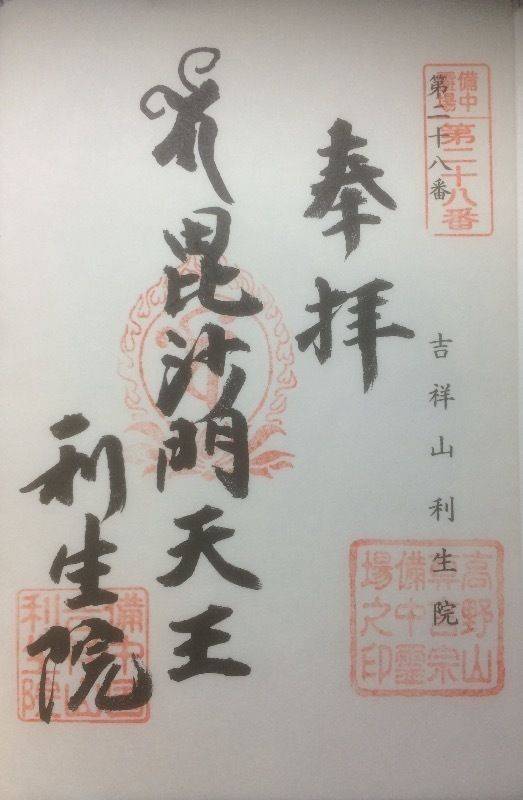 備中
霊場
第二十八番
第二十八番
吉祥山利生院
高野山
真言宗
備中霊
場之印
奉拝
毘沙門天王
利生院